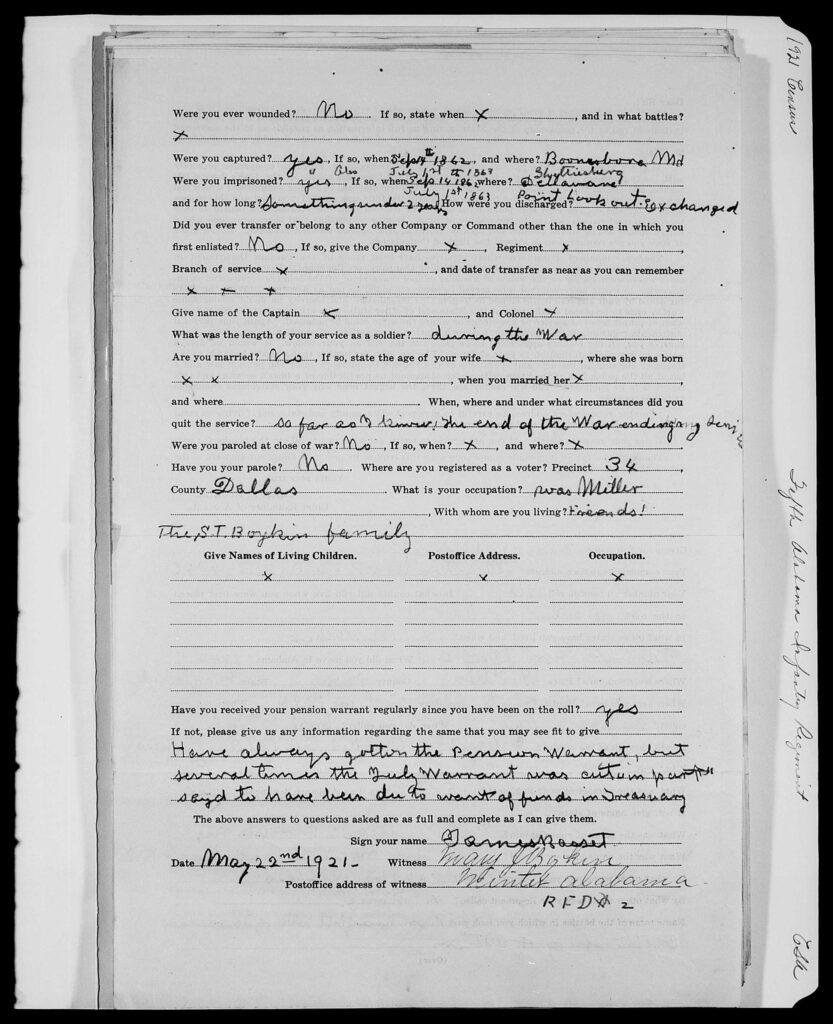 Were you ever wounded? No If so, state when x, and in what battles?
x
Were you captured? yes, If so, when Sept 14th 1862, and where? Boonesboro Md
" Also July 1st 1863
Were you imprisoned? yes, If so, when Sep 14 186 where? Dellaware
July 1st 1863 Point Look out.
and for how long? Something under 2 years How were you discharged? Exchanged
Did you ever transfer or belong to any other Company or Command other than the one in which you
first enlisted? No, If so, give the Company x, Regiment x,
Branch of service x, and date of transfer as near as you can remember
x x x
Give name of the Captain x, and Colonel x
What was the length of your service as a soldier? during the War
Are you married? No, If so, state the age of your wife x, where she was born
x x, when you married her x,
and where. When, where and under what circumstances did you
quit the service? so far as I know, the end of the War ending my
Were you paroled at close of war? No, If so, when? x, and where? x
Have you your parole? No. Where are you registered as a voter? Precinct 34,
County Dallas. What is your occupation? was Miller
, With whom are you living? Friends!
The, S.T. Boykin family
Give Names of Living Children. Postoffice Address. Occupation.
x x x
Have you received your pension warrant regularly since you have been on the roll? yes
If not, please give us any information regarding the same that you may see fit to give
Have always gotton the Pension Warrant, but
several times the July Warrant was cut in part"
sayd to have been du to want of funds in Treasuary
The above answers to questions asked are as full and complete as I can give them.
Sign your name James Basset
Date May 22nd 1921- Witness Mary J Boykin
Postoffice address of witness Minter Alabama
R F D # 2
(Over)
1921 Census
Fifth Alabama Infantry Regiment
CSA